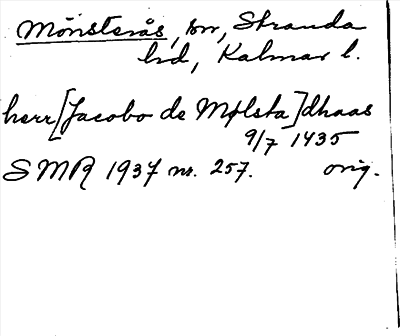 Mönsterås, sn, Stranda
hd, Kalmar l.
herr [Jacobo de Mølsta] dhaas
9/7 1435
SMR 1937 nr. 257. orig.